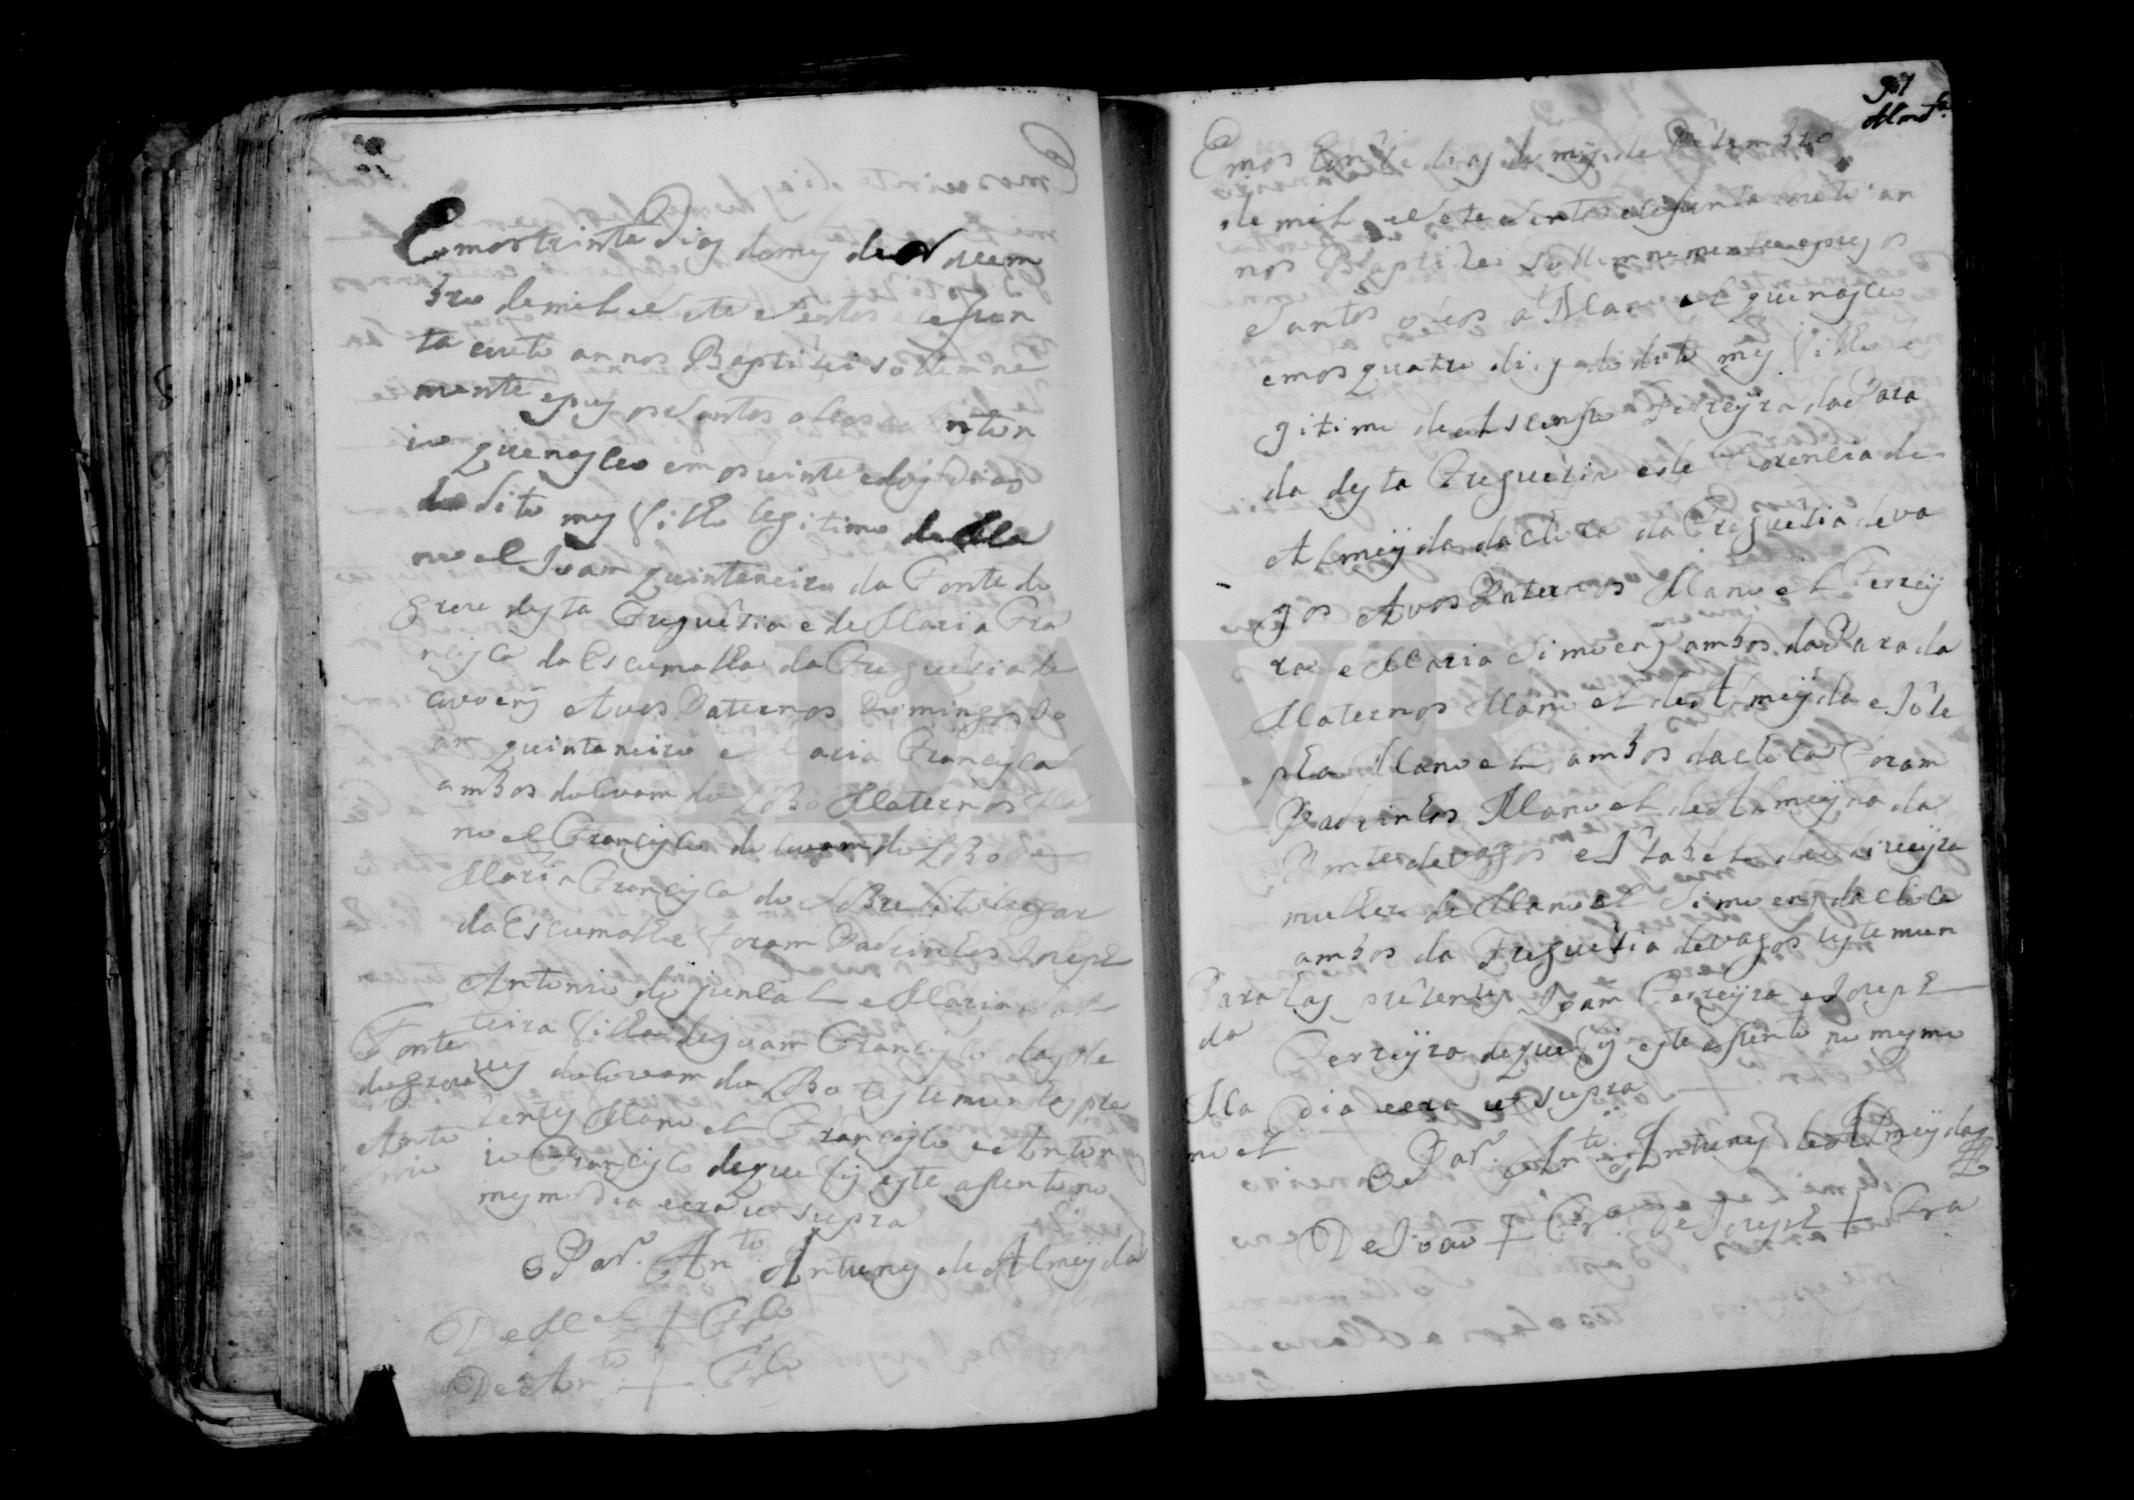 Emos trinta Dias do mes de Novem
bro de mil e sete sentos e sesen
ta e oito annos Baptizei sollemne
mente e puz os santos oleos a Anton
io que nasceo emos vinte e dois Dias
do dito mes filho legitimo de Ma
noel Joam quintaneiro da Fonte do
Grou desta Freguesia e de Maria Fra
ncisca da Escumalha da Freguesia de
Avos Paternos Domingos Jo
am quintaneiro e Maria Francisca
ambos do Covam do Lobo Maternos Ma
noel Francisco do Covam do Lobo e
Maria Francisca do sobredito lugar
da Escumalha foram Padrinhos Joseph
Antonio de e Maria
filha de Joam Francisco
do Covam do Lobo testemunhas pre
zentes Manoel Francisco e Anton
io Francisco de que fis este asento no
mesmo Dia e era ut supra
O Par. Anto. Antunes de Almeyda
De Mel + Frco
De Anto + Frco
Fonte
do Grou
Anto
nio
ADAVR
391
Emos vinte dias do mes de Setembro
de mil e sete sentos e sesenta e oito an
nos Baptizei sollemnemente e puz os
santos oleos a Manoel que nasceo
emos quatro dias do dito mes filho le
gitimo de Ascenso Ferreyra da Para
da desta Freguesia e de Lorensa de
Almeyda da da Freguesia de va
gos Avos Paternos Manoel Ferrey
ra e Maria Simoens ambos da Parada
Maternos Manoel de Almeyda e Joze
pha Manoel ambos da foram
Padrinhos Manoel de Almeyda da
Ponte de vagos e Izabel de
mulher de Manoel Simoens da
ambos da Freguesia de vagos testemun
has prezentes Joam Ferreyra e Joseph
Ferreyra de que fis este asento no mesmo
Dia e era ut supra
O Par. Anto. Antunes de Almeyda
De Joaõ + Fra De Joseph + Fra
Para
da
Ma
noel